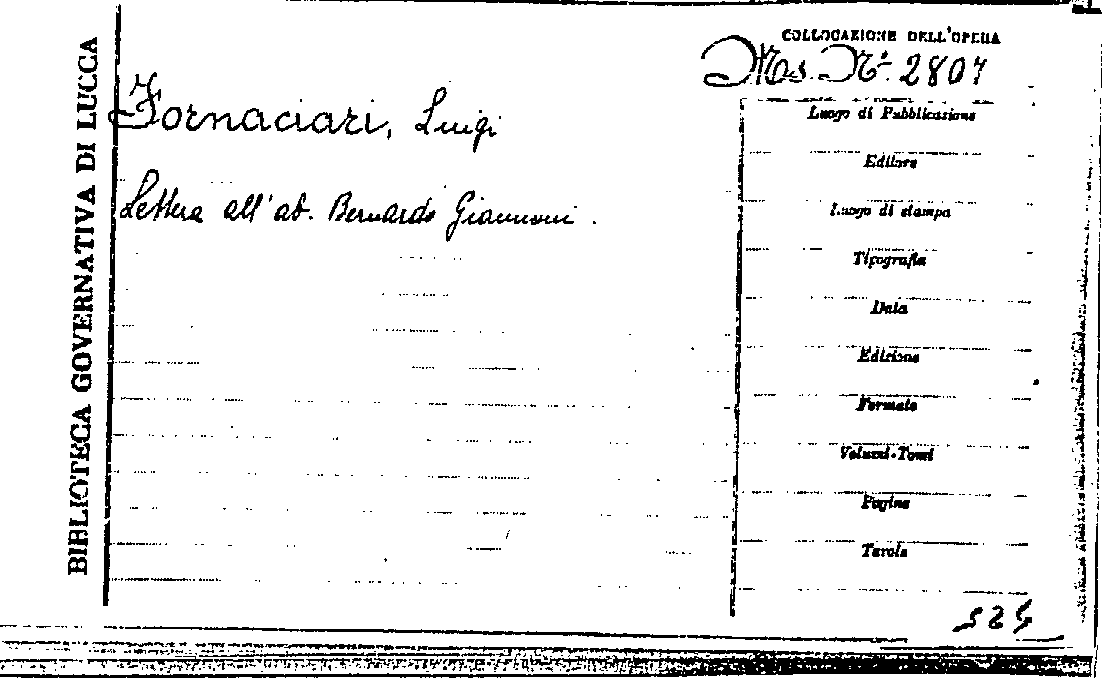 BIBLIOTECA GOVERNATIVA DI LUCCA
COLLOCAZIONE DELL'OPERA
Ms. N° 2807
Fornaciari, Luigi
Lettera all'ab. Bernardo Giannoni.
Luogo di Pubblicazione
Editore
Luogo di stampa
Tipografia
Data
Edizione
Formato
Volumi-Tomi
Pagine
Tavole
524